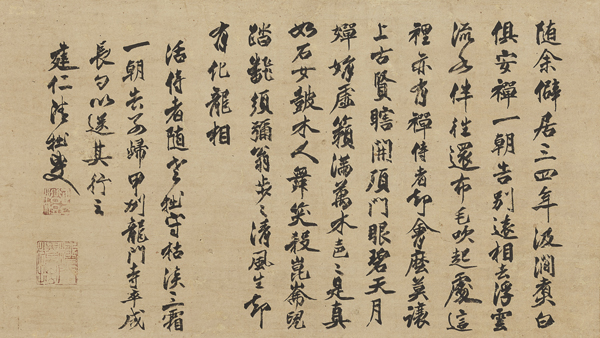 随余僻居三四年汲澗煮白
俱安禪一朝告別遠相去浮雲
流水伴往還布毛吹起處這
裡亦有禪侍者却會麼莫讓
上古賢瞎開頂門眼碧天月
嬋娟虛籟滿萬木色〻是真
如石女皷木人舞笑殺崑崙兒
踏翻須彌翁步〻清風生却
有化龍相
活侍者随老拙守枯淡三霜
一朝告予歸甲州龍門寺卒成
長句以送其行云
建仁拙叟